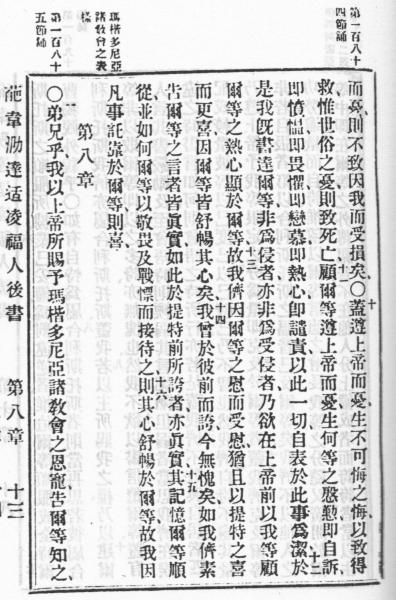 第一百八十
四節誦
而憂則不致因我而受損矣○十蓋遵上帝而憂生不可悔之悔以致得
救惟世俗之憂則致死亡十一顧爾等遵上帝而憂生何等之慇懃即自訴
即憤慍即畏懼即戀慕即熱心即譴責以此一切自表於此事爲潔十二於
是我旣書達爾等非爲侵者亦非爲受侵者乃欲在上帝前以我等顧
爾等之熱心顯於爾等十三故我儕因爾等之慰而受慰猶且以提特之喜
而更喜因爾等皆舒暢其心矣十四我曾於彼前而誇今無愧矣如我儕素
告爾等之言者皆眞實如此於提特前所誇者亦眞實十五其記憶爾等順
從並如何爾等以敬畏及戰慄而接待之則其心舒暢於爾等十六故我因
凡事託靠於爾等則喜
瑪楷多尼亞
諸教會之表
樣
第八章
第一百八十
五節誦
○弟兄乎我以上帝所賜予瑪楷多尼亞諸教會之恩寵告爾等知之
韋泐達适凌福人後書 第八章 十三